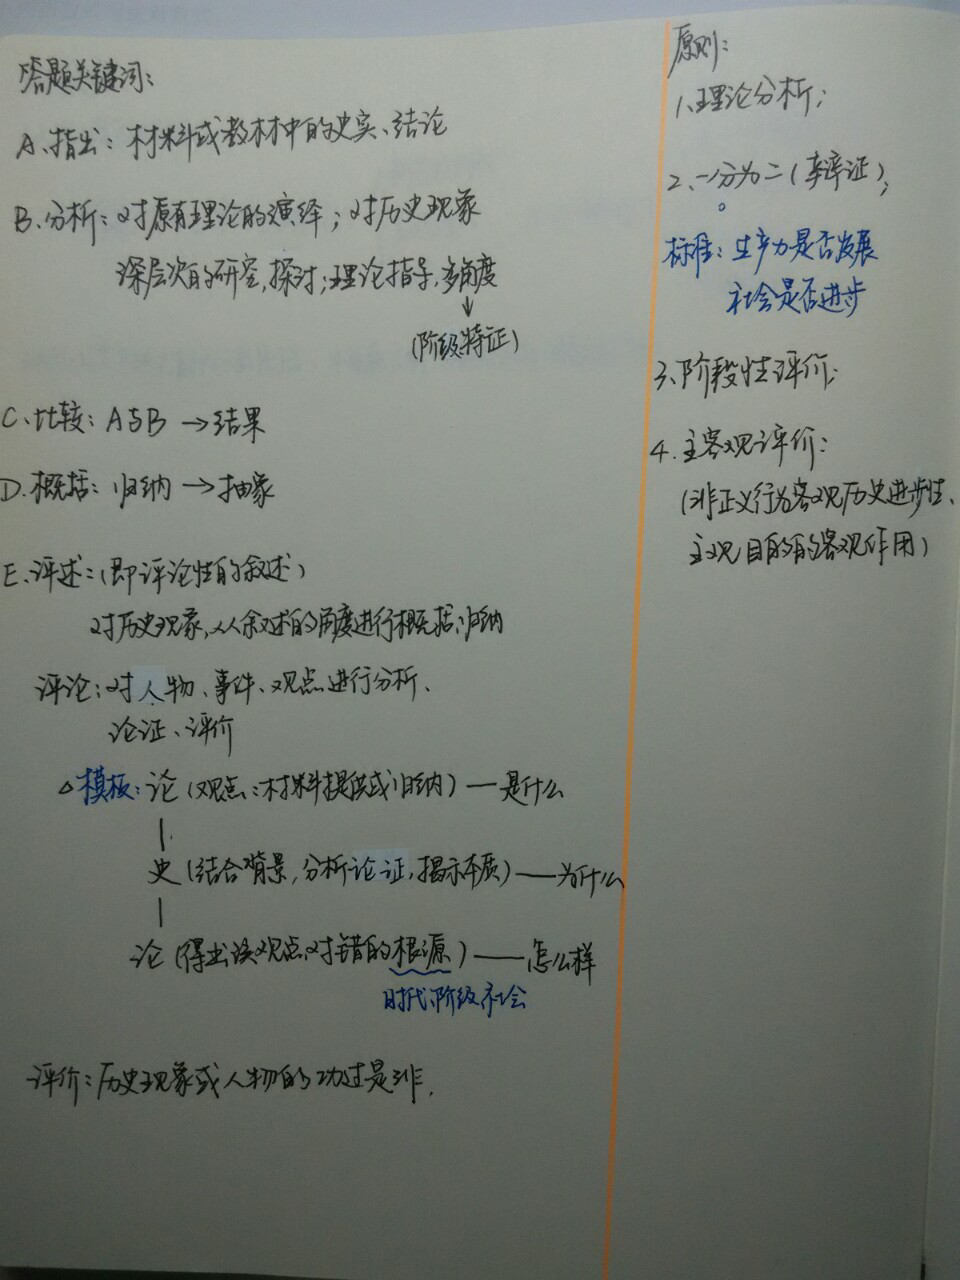 答题关键词:
A.指出: 材料或教材中的史实、结论
B.分析: 对原有理论的演绎; 对历史现象
深层次的研究,探讨; 理论指导,多角度
↓
(阶级特征)
C.比较: A与B →结果
D.概括: 归纳 →抽象
E.评述:(即评论性的叙述)
对历史现象,从叙述的角度进行概括,归纳
评论: 对人物、事件、观点进行分析、
论证、评价
△模板: 论 (观点:材料提供或归纳) — 是什么
史 (结合背景,分析论证,揭示本质) —— 为什么
论 (得出该观点对错的根源) —— 怎么样
时代、阶级社会
评价: 历史现象或人物的功过是非.
原则:
1.理论分析;
2.一分为二(辩证);
标准: 生产力是否发展
社会是否进步
3.阶段性评价;
4.主客观评价:
(非正义行为客观历史进步性、
主观目的的客观作用)